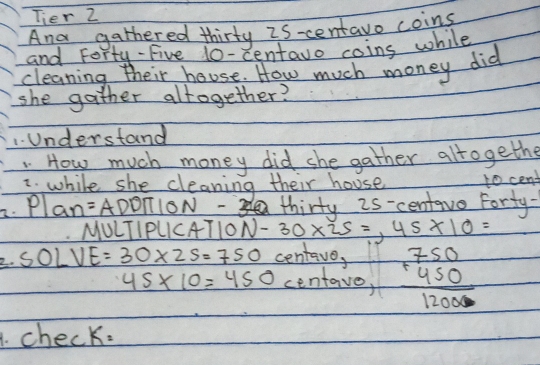 Tier 2
Ana gathered thirty 25-centavo coins
and Forty-Five 10-centavo coins while
cleaning their house. How much money did
she gather altogether?
1. Understand
1. How much money did she gather altogethe
2. while she cleaning their house
10 cent
2. Plan = ADDITION - thirty 25-centavo Forty-
MULTIPLICATION - 30x25=, 45x10=
3. SOLVE = 30x25=750 centavo, 750
45x10=450 centavo, +450
1200
4. check: